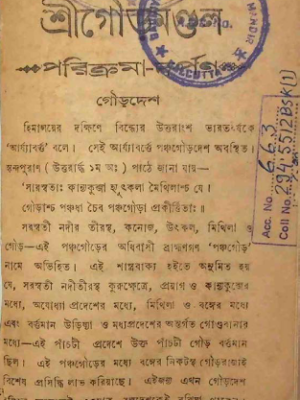 শ্রীগৌড়মণ্ডল
পরিক্রমা-দর্পণ
গৌড়দেশ
হিমালয়ের দক্ষিণে বিন্ধ্যের উত্তরাংশ ভারতবর্ষকে
'আর্য্যাবর্ত্ত' বলে। সেই আর্য্যাবর্ত্তে পঞ্চগৌড়দেশ অবস্থিত।
স্কন্দপুরাণ (উত্তরার্দ্ধ ১ম অঃ) পাঠে জানা যায়—
"সারস্বতাঃ কান্যকুব্জা উৎকলা মৈথিলাশ্চ যে।
গৌড়াশ্চ পঞ্চধা চৈব পঞ্চগৌড়া প্রকীর্ত্তিতাঃ॥
সরস্বতী নদীর তীরস্থ, কনোজ, উৎকল, মিথিলা ও
গৌড়—এই পঞ্চগৌড়ের অধিবাসী ব্রাহ্মণগণ 'পঞ্চগৌড়'
নামে অভিহিত। এই শাস্ত্রবাক্য হইতে অনুমিত হয়
যে, সরস্বতী নদীতীরস্থ কুরুক্ষেত্রে, প্রয়াগ ও কান্যকুব্জের
মধ্যে, অযোধ্যা প্রদেশের মধ্যে, মিথিলা ও বঙ্গের মধ্যে
এবং বর্ত্তমান উড়িষ্যা ও মধ্যপ্রদেশের অন্তর্গত গোণ্ডবানার
মধ্যে—এই পাঁচটী প্রদেশে উক্ত পাঁচটী গৌড় বর্ত্তমান
ছিল। এই পঞ্চগৌড়ের মধ্যে বঙ্গের নিকটস্থ গৌড়রাজ্যই
বিশেষ প্রসিদ্ধি লাভ করিয়াছে। এইজন্য এখন গৌড়দেশ
Acc. No. 663
Coll No. 294.5512 BSK(1)